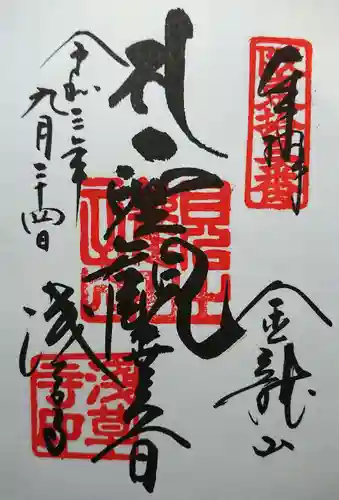 奉拝
坂東十三番
金龍山
聖観世音
令和三年
九月二十四日
浅草寺
浅草寺印